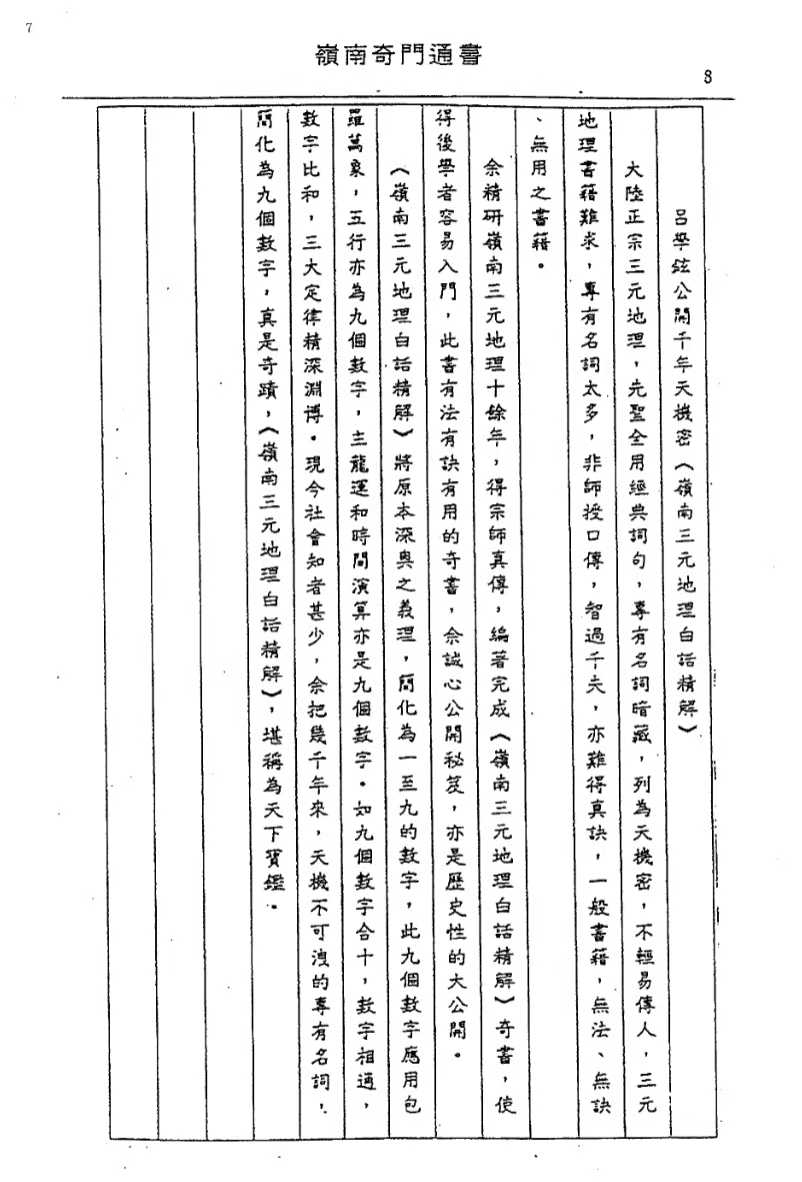 7
嶺南奇門通書
8
呂學鉉公開千年天機密《嶺南三元地理白話精解》
大陸正宗三元地理，先聖全用經典詞句，專有名詞暗藏，列為天機密，不輕易傳人，三元
地理書籍難求，專有名詞太多，非師授口傳，智過千夫，亦難得真訣，一般書籍，無法、無訣
、無用之書籍。
余精研嶺南三元地理十餘年，得宗師真傳，編著完成《嶺南三元地理白話精解》奇書，使
得後學者容易入門，此書有法有訣有用的奇書，余誠心公開秘笈，亦是歷史性的大公開。
《嶺南三元地理白話精解》將原本深奧之義理，簡化為一至九的數字，此九個數字應用包
羅萬象，五行亦為九個數字，主龍運和時間演算亦是九個數字。如九個數字合十，數字相通，
數字比和，三大定律精深淵博。現今社會知者甚少，余把幾千年來，天機不可洩的專有名詞，
簡化為九個數字，真是奇蹟，《嶺南三元地理白話精解》，堪稱為天下寶鑑。